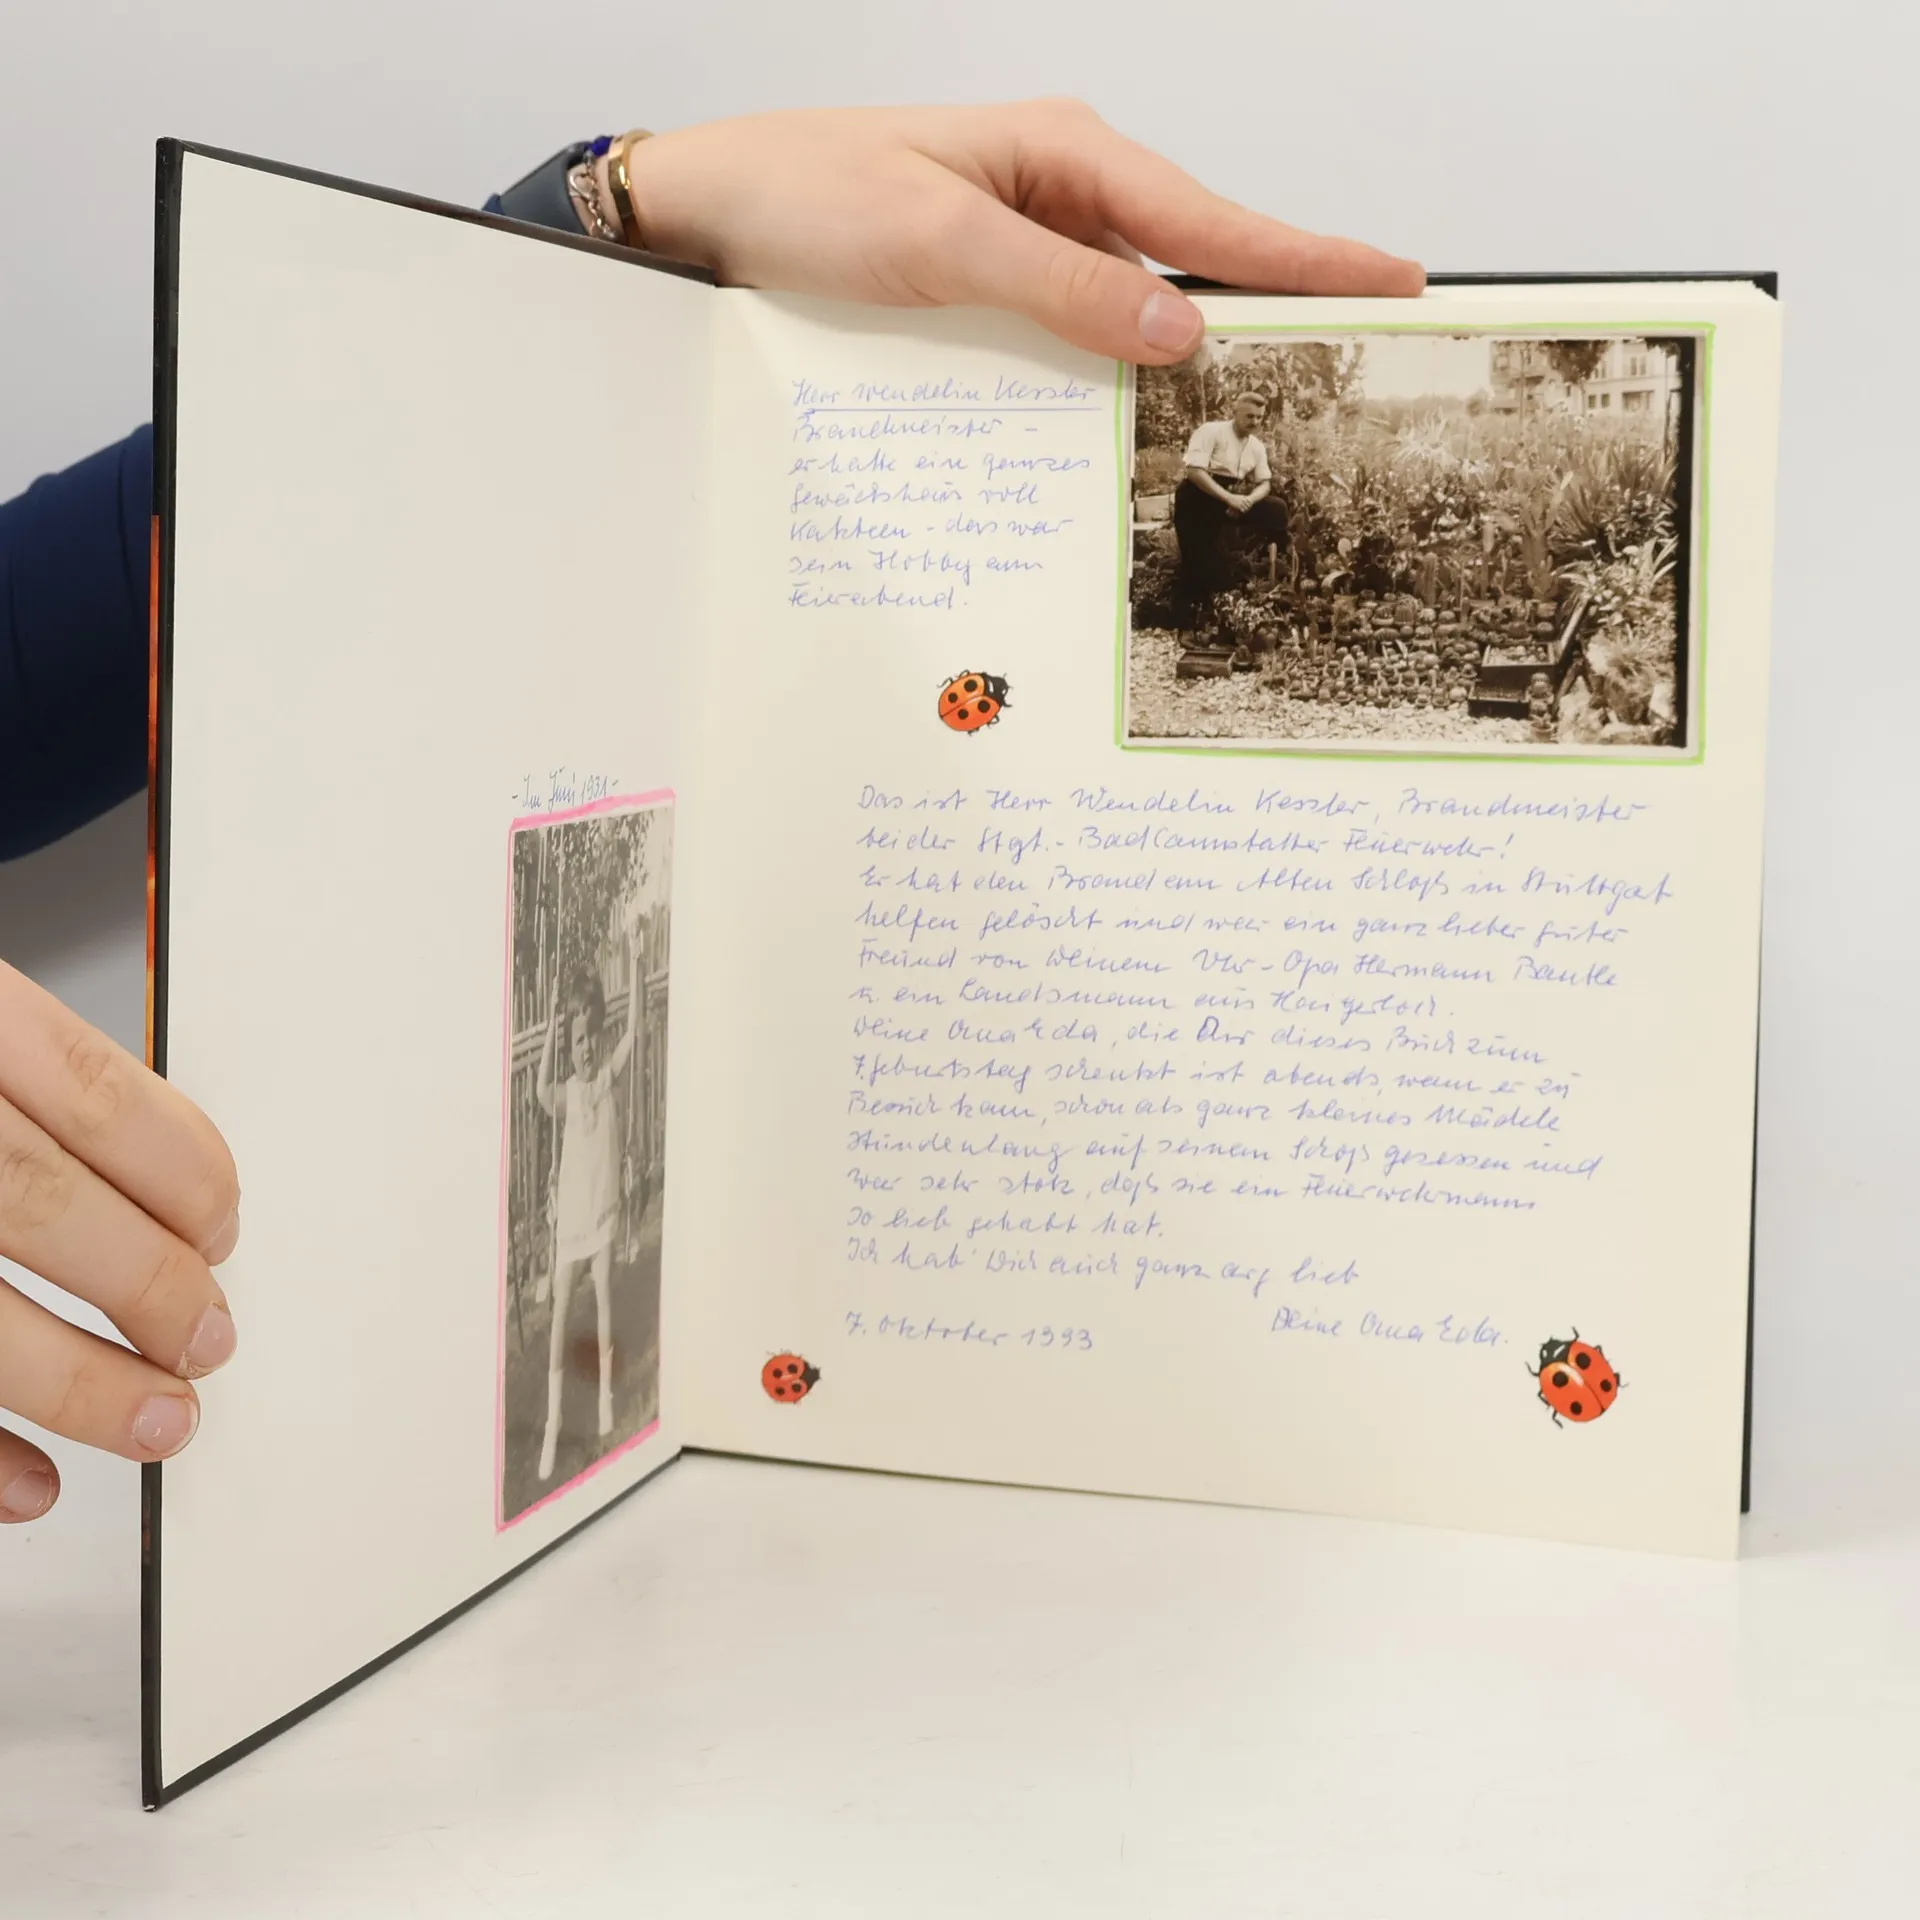 - Im Juni 1931 -
Herr Wendelin Kessler
Brandmeister -
er hatte ein ganzes
Gewächshaus voll
Kakteen - das war
sein Hobby am
Feierabend.
Das ist Herr Wendelin Kessler, Brandmeister
bei der Stgt.- Bad Cannstatter Feuerwehr!
Er hat den Brand am Alten Schloß in Stuttgat
helfen gelöscht und war ein ganz lieber guter
Freund von Deinem Ur-Opa Hermann
u. ein Landsmann aus Haigerloch.
Deine Oma Eda, die Dir dieses Buch zum
7. Geburtstag schenkt ist abends, wenn er zu
Besuch kam, schon als ganz kleines Mädele
stundenlang auf seinem Schoß gesessen und
war sehr stolz, daß sie ein Feuerwehrmann
so lieb gehabt hat.
Ich hab' Dich auch ganz arg lieb
7. Oktober 1993 Deine Oma Eda.